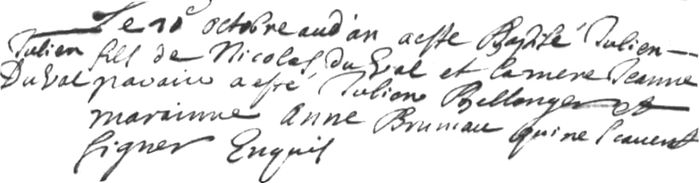 Le 10e octobre aud an aeste Baptisé Julien
Julien fils de Nicolas du Val et la mere Jeanne
Du Val parain aesté Julien Bellonger et
marainne Anne Bruneau qui ne scauent
signer Enquis